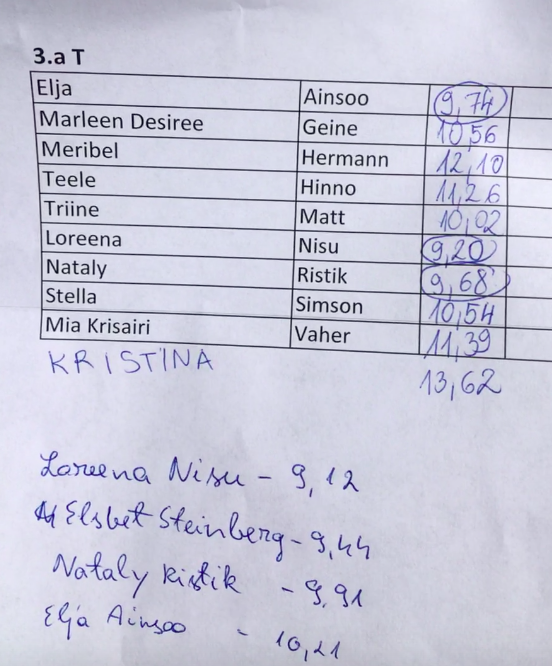 3.a T
Elja Ainsoo 9,74
Marleen Desiree Geine 10,56
Meribel Hermann 12,10
Teele Hinno 11,26
Triine Matt 10,02
Loreena Nisu 9,20
Nataly Ristik 9,68
Stella Simson 10,54
Mia Krisairi Vaher 11,39
KRISTINA 13,62
Loreena Nisu - 9,12
Elsbet Steinberg - 9,44
Nataly Ristik - 9,91
Elja Ainsoo - 10,21